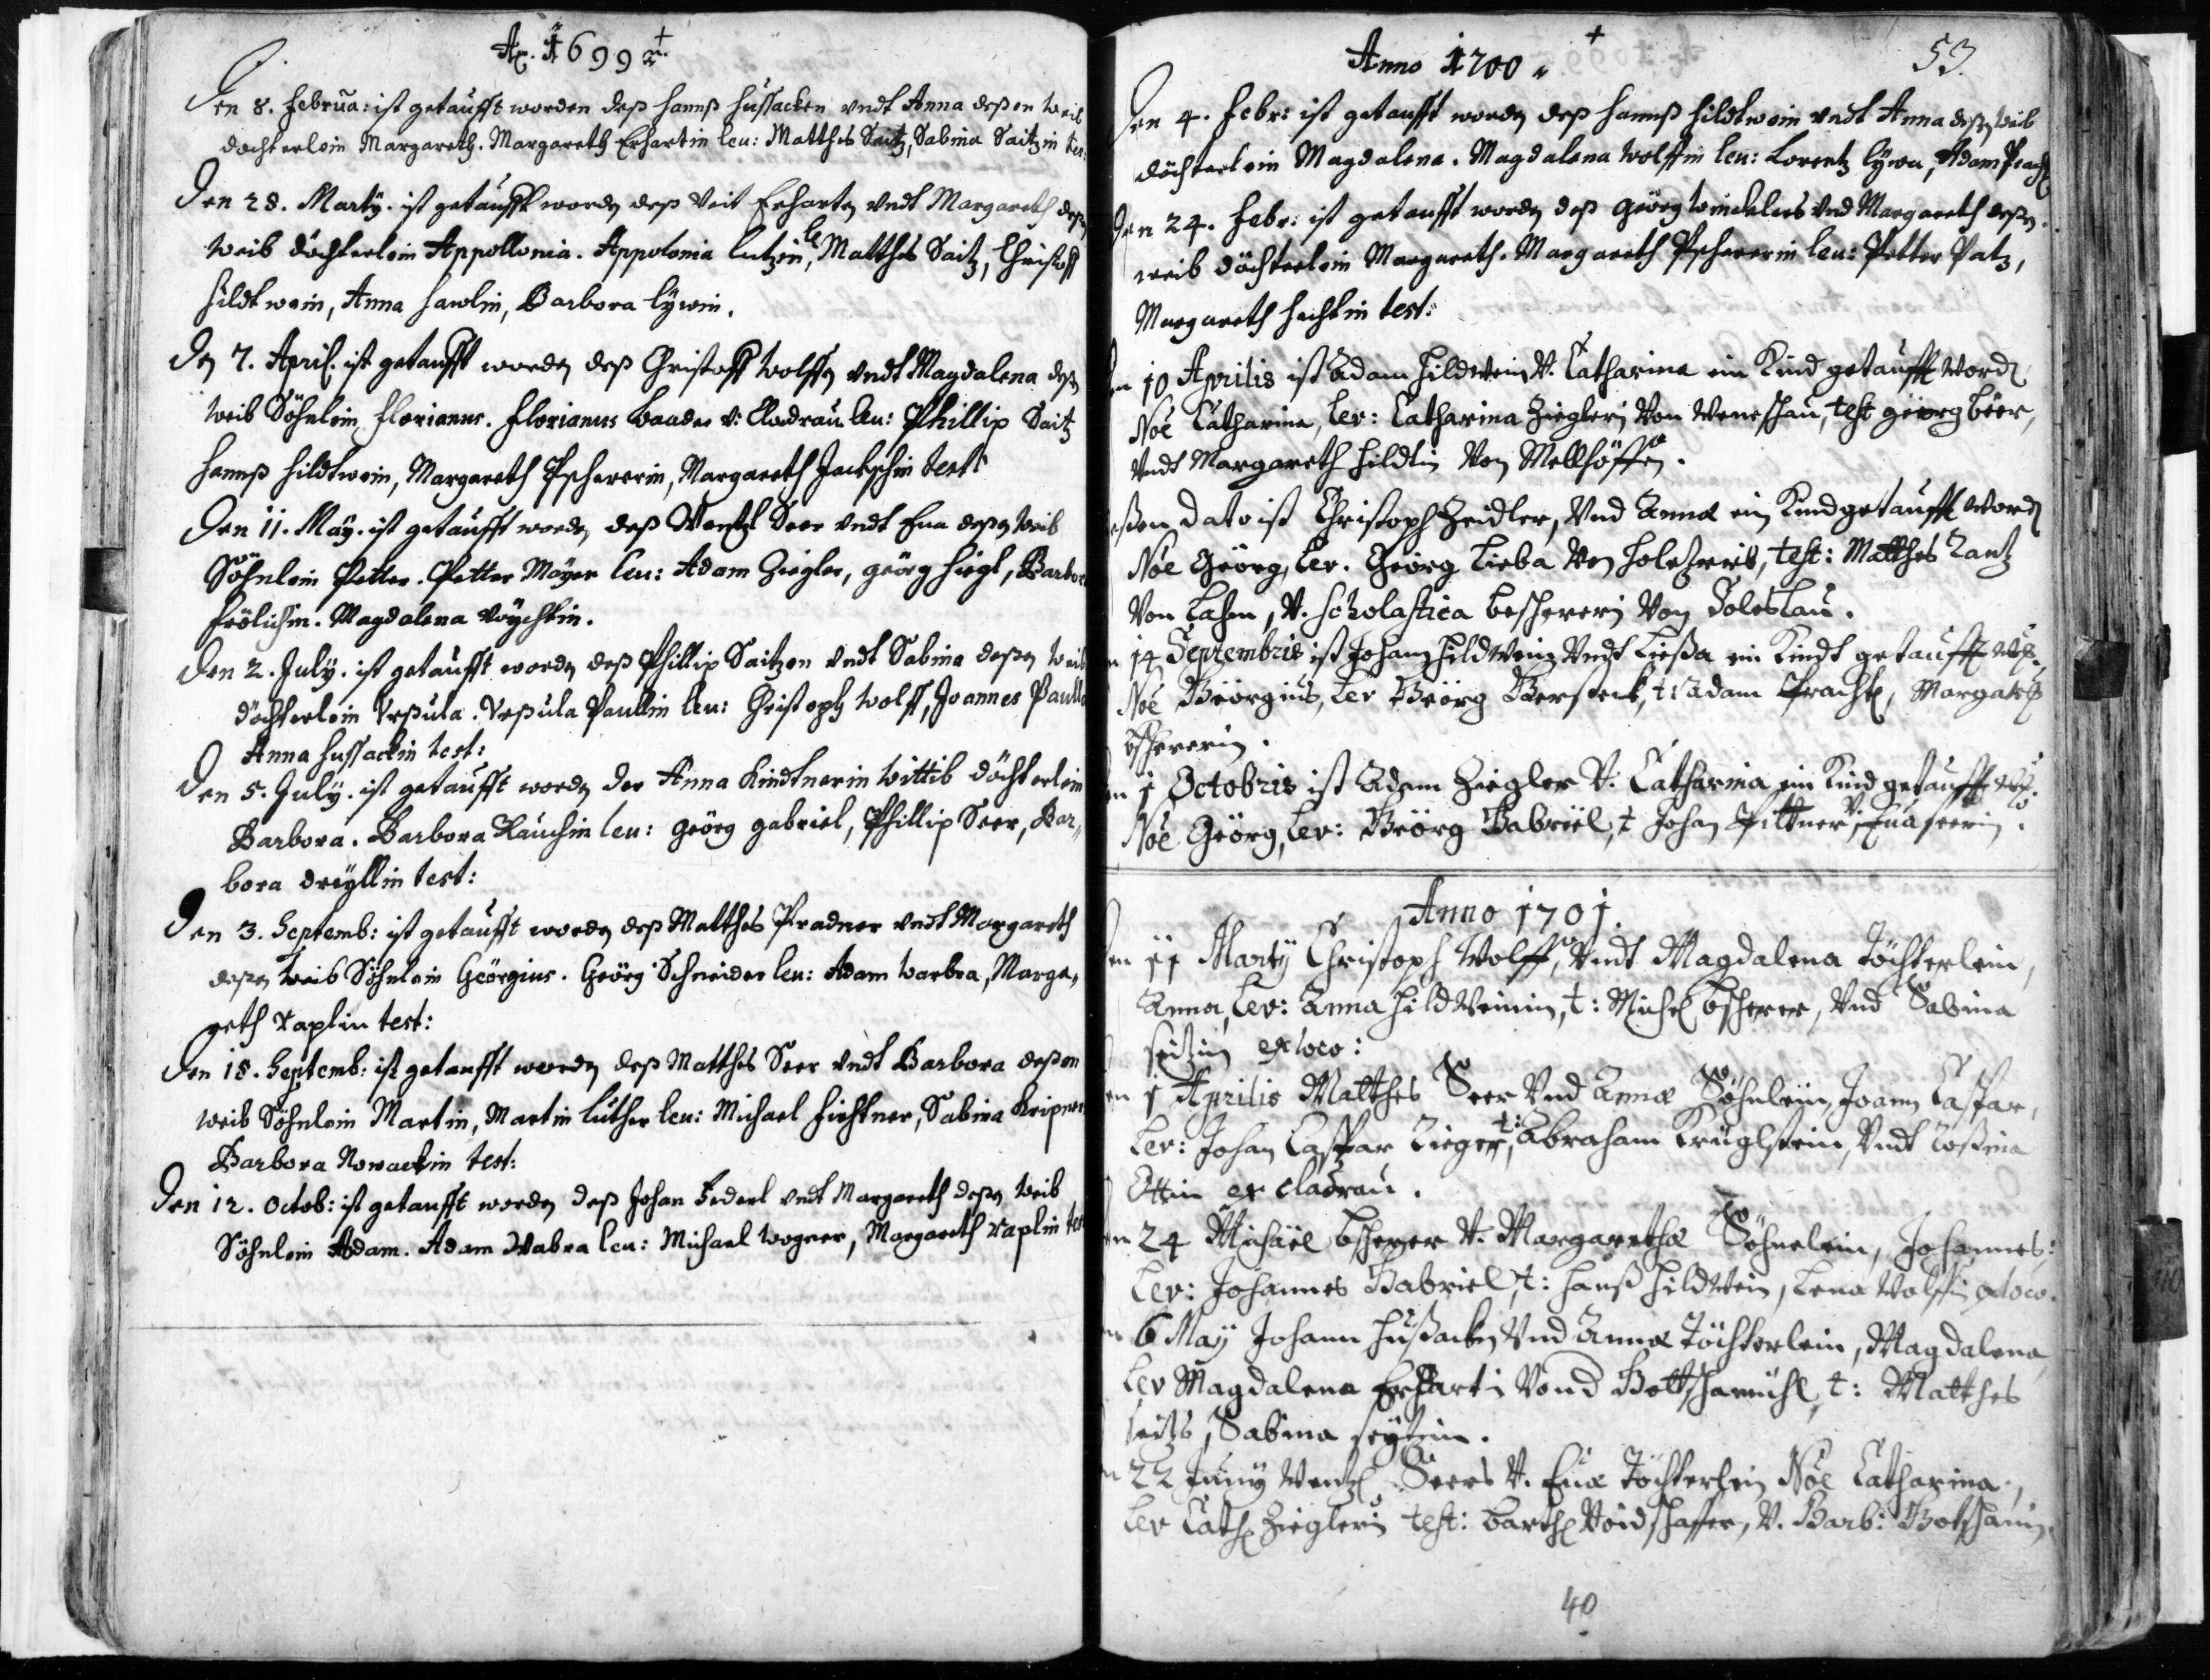 Ao. 1699
Den 8. Februa: ist getaufft worden deß Hannß Hussacken vndt Anna deßen Weib
döchterlein Margareth. Margareth Erhartin leu: Matthes Saitz, Sabina Saitzin tes:
Den 28. Marty. ist getaufft worden deß Veit Erharten vndt Margareth deßen
Weib döchterlein Appollonia. Appolonia Lutzin, le Matthes Saitz, Christoff
Hildtwein, Anna Hawlin, Barbora Lÿwin.
Den 7. April: ist getaufft worden deß Christoff Wolffen vndt Magdalena deßen
Weib Söhnlein Florianus. Florianus Baader v: Cladrau leu: Phillip Saitz
Hannß Hildtwein, Margareth Pschererin, Margareth Jackschin test:
Den 11. May. ist getaufft worden deß Wentzl Seer vndt Eua deßen Weib
Söhnlein Petter. Petter Mäyer leu: Adam Ziegler, Geörg Hiegl, Barbora
Frölichin. Magdalena
Den 2. July. ist getaufft worden deß Phillip Saitzen vndt Sabina deßen Weib
döchterlein Vrsula. Vrsula Paullin leu: Christoph Wolff, Joannes Paull
Anna Hussackin test:
Den 5. July. ist getaufft worden der Anna Kindtnerin Wittib döchterlein
Barbora. Barbora Rauchin leu: Geörg Gabriel, Phillip Seer, Bar„
bora Dreyllin test:
Den 3. Septemb: ist getaufft worden deß Matthes Pradner vndt Margareth
deßen Weib Söhnlein Geörgius. Geörg Schneider leu: Adam Warbra, Marga„
reth Raplin test:
Den 18. Septemb: ist getaufft worden deß Matthes Seer vndt Barbora deßen
Weib Söhnlein Martin, Martin Luther leu: Michael Fichtner, Sabina Kripner
Barbora Nowackin test:
Den 12. Octob: ist getaufft worden deß Johan Federl vndt Margareth deßen Weib
Söhnlein Adam. Adam Wabra leu: Michael Wagner, Margareth Raplin tes
Anno 1700
53.
Den 4. Febr: ist getaufft worden deß Hannß Hildtwein vndt Anna deßen Weib
döchterlein Magdalena. Magdalena Wolffin leu: Lorentz Lÿwa, Adam Pracht
Den 24. Febr: ist getaufft worden deß Geörg Winckelers vnd Margareth deßen
weib döchterlein Margareth. Margareth Pschererin leu: Petter Patz,
Margareth Hechtin test:
en 10 Aprilis ist Adam Hildwein V. Catharina ein Kind getaufft word
Noe Catharina, Lev: Catharina Zieglerin Von Wenschau, test Georg Beer,
Vndt Margareth Hildtin Von Mellhöffen.
eßen dato ist Christoph Zeidler, Vnd Annæ ein Kind getaufft word
Noe Geörg, Lev. Geörg Lieba Von Holezries, test: Matthes Lantz
Von Lasen, V. Scholastica Beschererin Von Doleslau.
n 14 Septembris ist Johan Hildwein Vndt Liesa ein Kindt getaufft
Noe Geörgius, Lev Geörg Bersteck, t: Adam Pracht, Margareth
Bschererin.
en 1 Octobris ist Adam Ziegler V. Catharina ein Kind getaufft
Noe Geörg, Lev: Geörg Gabriel, t Johan Pittner, V. Eua Seerin.
Anno 1701.
en 11 Marty Christoph Wolff, Vndt Magdalena Töchterlein,
Anna, Lev: Anna Hildweinin, t: Michel Bscherer, Vnd Sabina
Seitzin ex loco:
en 1 Aprilis Matthes Seer Vnd Annæ Söhnlein, Joann Caspar,
Lev: Johan Caspar Zieger, t: Abraham Krüglstein, Vndt Rosina
Ottin ex Cladrau.
en 24 Michäel Bscherer V. Margarethæ Söhnelein, Johannes:
Lev: Johannes Gabriel, t: Hanß Hildwein, Lena Wolffin ex loco.
en 6 Maÿ Johann Hußacken Vnd Annæ Töchterlein, Magdalena,
Lev Magdalena Erhartin Von d Bottschamühl, t: Matthes
Seitz, Sabina Seytzin.
n 22 Junÿ Wentzl Seers V. Euæ Töchterlein Noe Catharina,
Lev Cath Zieglerin test: Barthl Voidschaffer, V. Barb: Botschain.
40